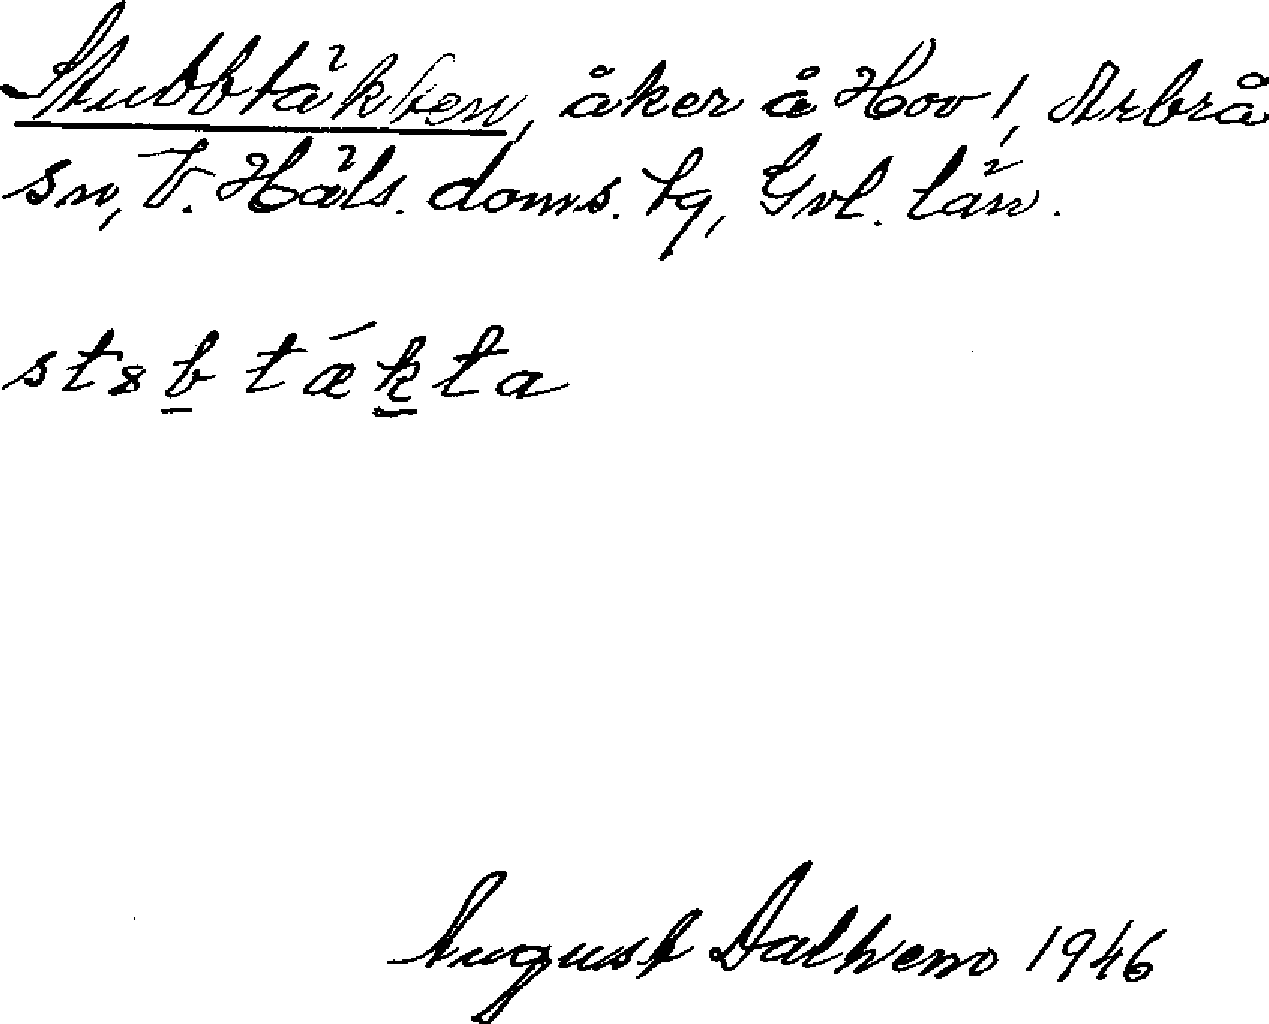 Stubbtäkten, åker å Hov 1, Arbrå
sn, V. Häls. doms. tg, Gvl. län.
st8b tækta
August Dalhemo 1946